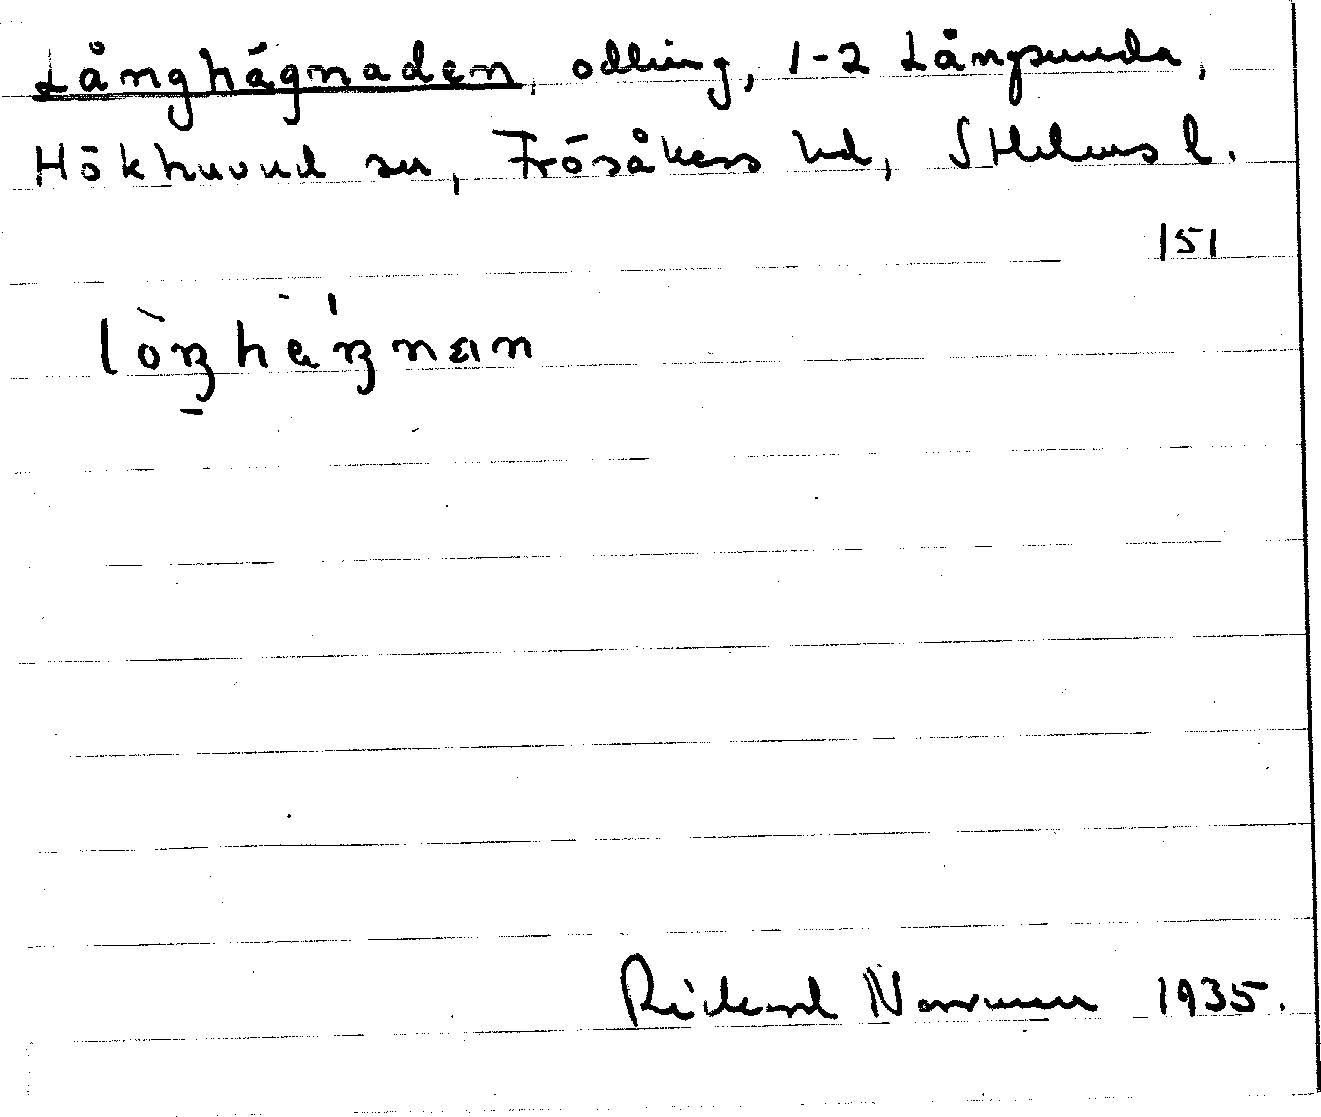 Långhägnaden, odling, 1-2 Långsunda,
Hökhuvud sn, Frösåkers hd, Sthlms l.
151
Rickard Norrman 1935.